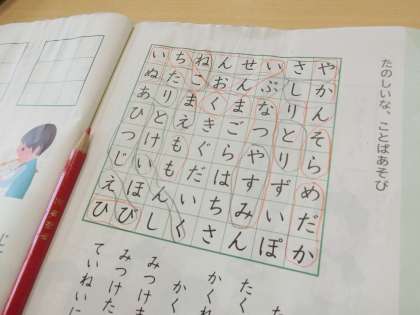 たのしいな、ことばあそび
やかんそらめだか
さしりとりずいぽ
いぶなつやすみん
せんまごらはちさ
んおくきぐだいく
ねこまえももんし
ちたりとけいほび
いぬあひつじえひ
たく
かくれ
かく
みつけま
みつけた
ていねいに